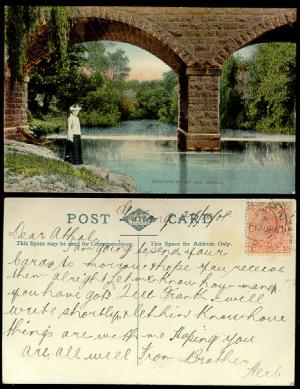 POST CARD
This Space may be used for Correspondence.
This Space for Address only.
Dear Athol,
I am going to send your
cards to
you Hope you receive
them alright Let me know how many
you have got. Tell Frank I will
write shortly & let him know how
things are with me Hoping you
are all well From Brother
Herb.